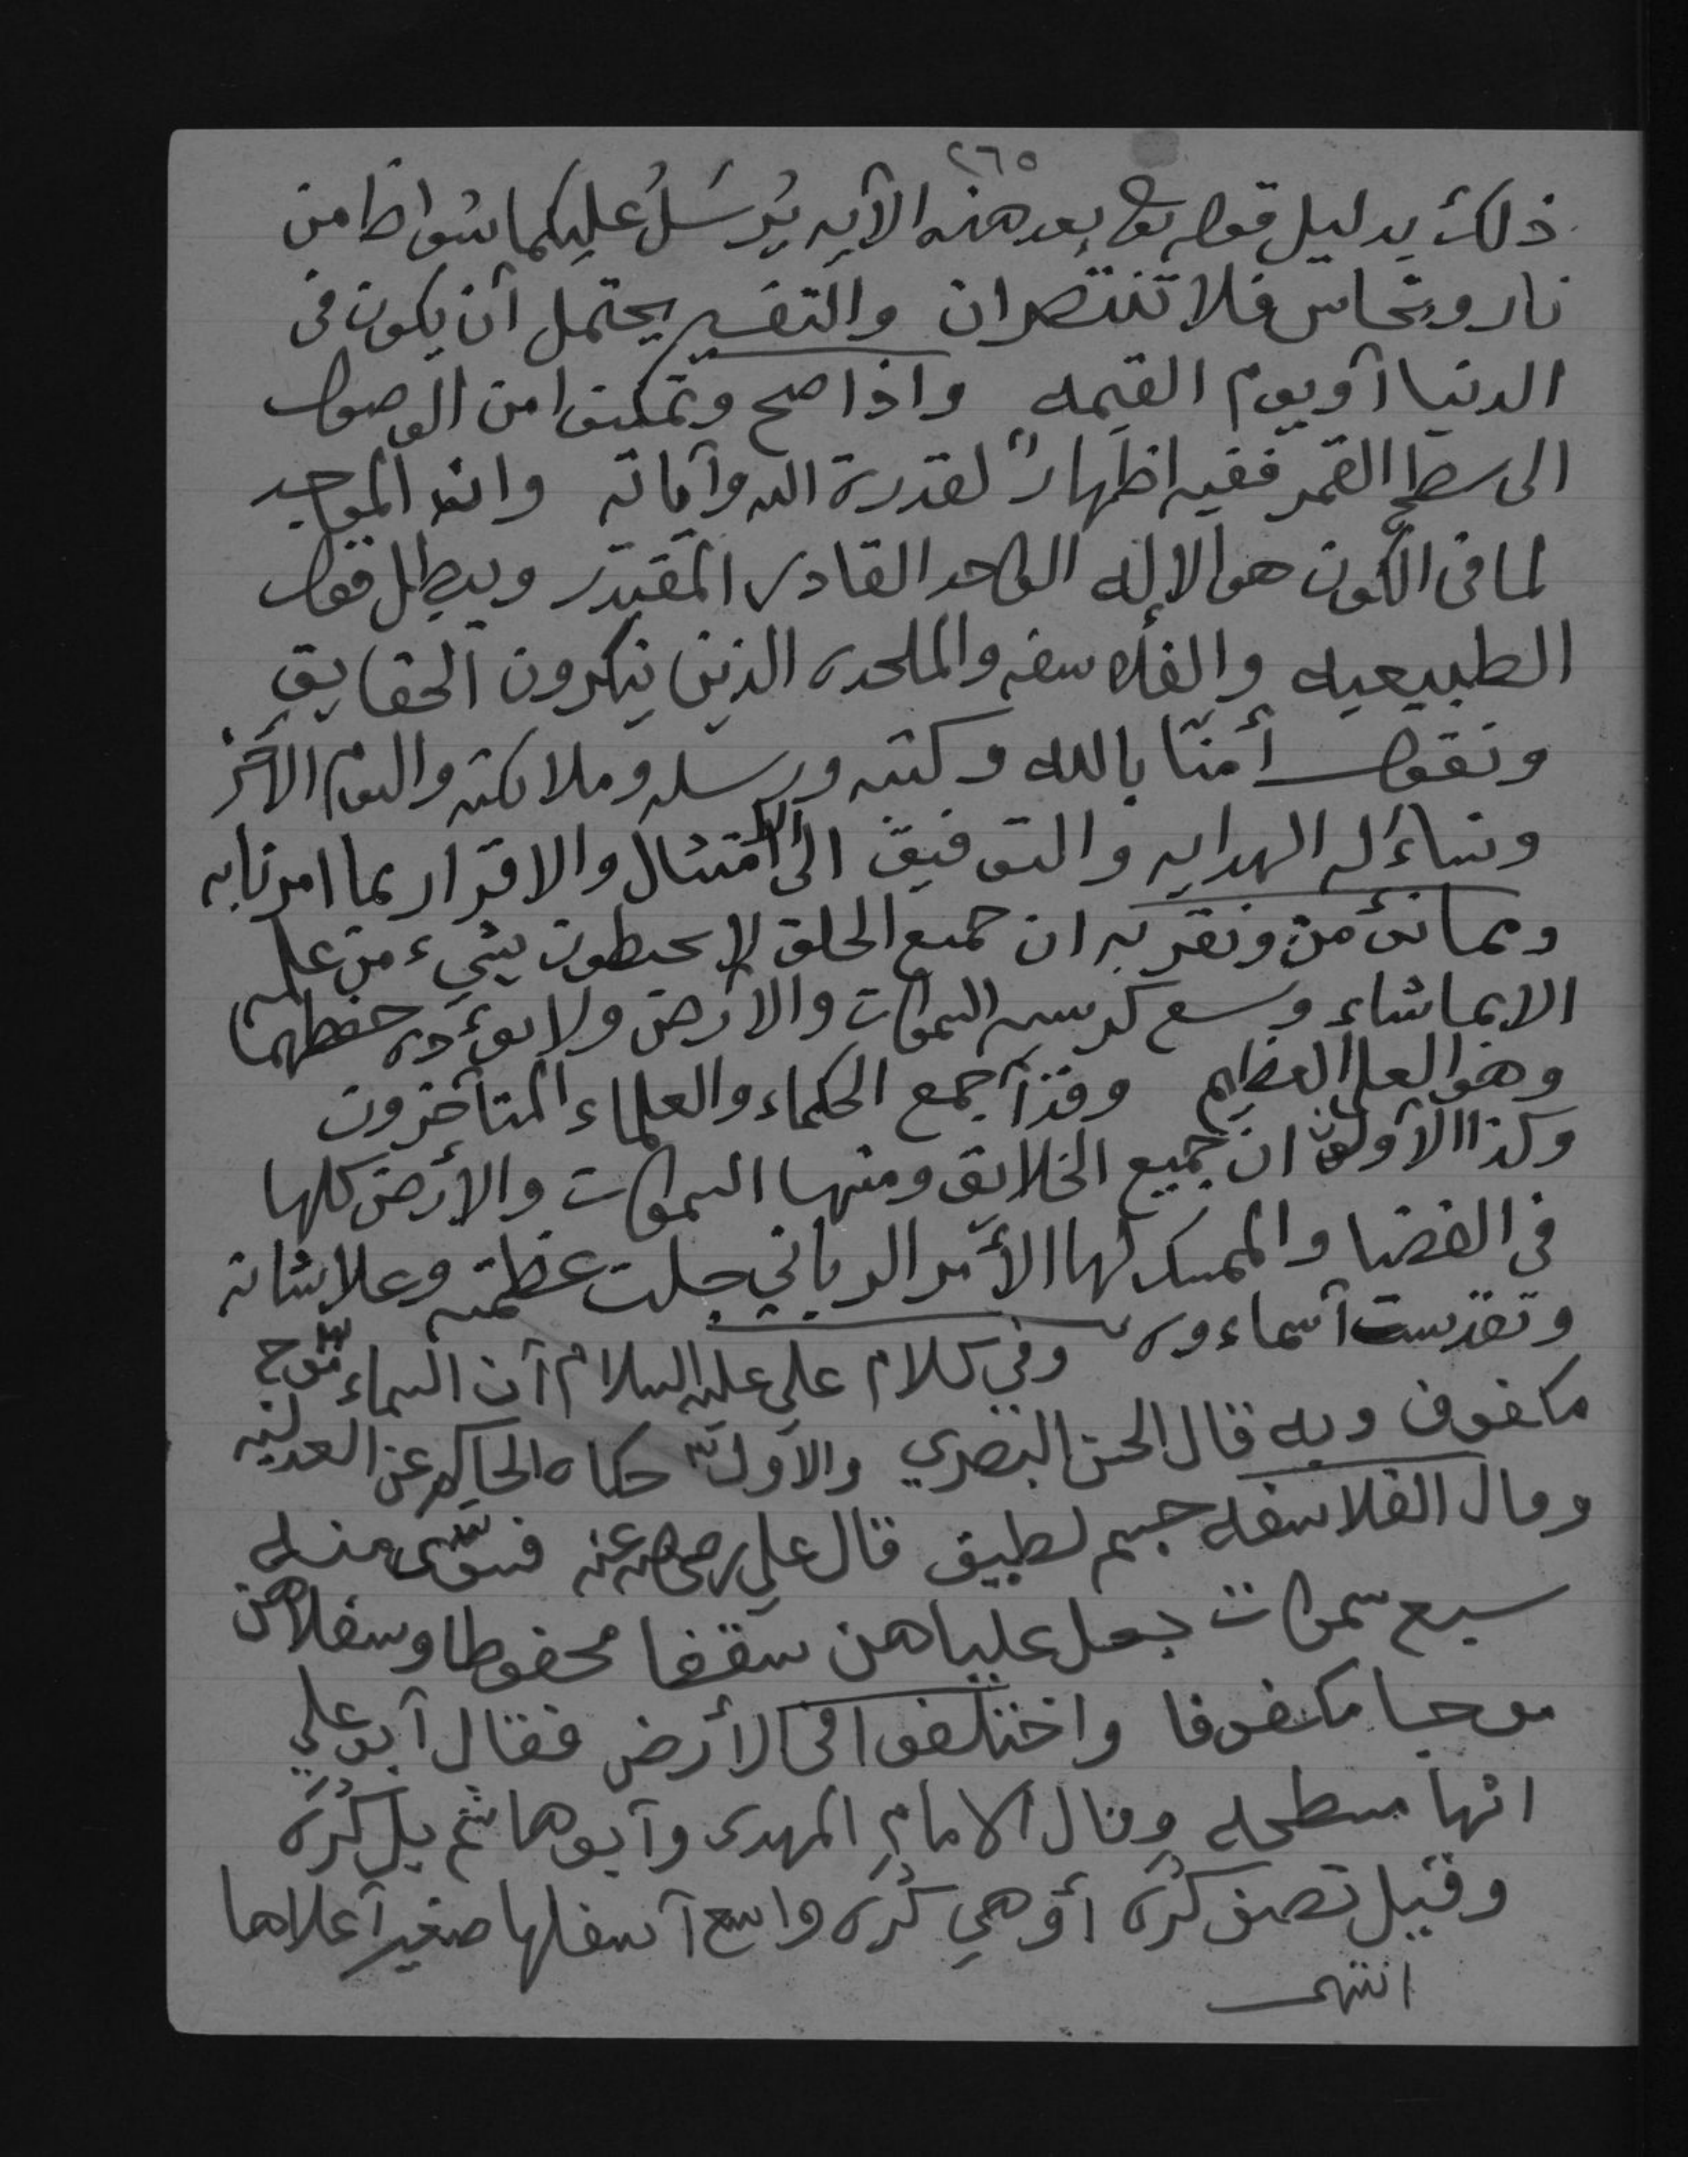 ٢٦٥
ذلك بدليل قوله تعالى بعد هذه الآيه يُرسَلُ عليكما شواظ من
نار ونحاس فلا تنتصران والتفسير يحتمل أن يكون في
الدنيا أو يوم القيمه واذا صح وتمكنوا من الوصول
الى سطح القمر ففيه اظهارٌ لقدرة الله وآياته وانه الموجد
لما في الكون هو الإله الواحد القادر المقتدر ويبطل قول
الطبيعيه والفلاسفه والملحده الذين ينكرون الحقايق
ونقول أمنّا بالله وكتبه ورسله وملائكته واليوم الأخر
ونساءله الهدايه والتوفيق الى الامتثال والاقرار بما امرنا به
ومما نؤمن ونقر به ان جميع الخلق لا يحيطون بشيء من علمه
الا بما شاء وسع كرسيه السموات والأرض ولا يؤده حفظهما
وهو العلي العظيم وقد أجمع الحكماء والعلماء المتأخرون
وكذا الأولون ان جميع الخلايق ومنها السموات والأرض كلها
في الفضا والممسك لها الأمر الرباني جلت عظمته وعلا شانه
وتقدست أسماءوه وفي كلام علي عليه السلام أن السماء موج
مكفوف وبه قال الحسن البصري والأول حكاه الحاكم عن العدليه
وقال الفلاسفه جسم لطيف قال علي رضي الله عنه فسوّى منه
سبع سموات جعل علياهن سقفا محفوظا وسفلاهن
موجا مكفوفا واختلفوا في الأرض فقال أبو علي
انها مسطحه وقال الامام المهدى وأبو هاشم بل كُرَه
وقيل نصف كُرَه أو هي كُرَه واسع أسفلها صغير أعلاها
انتهى